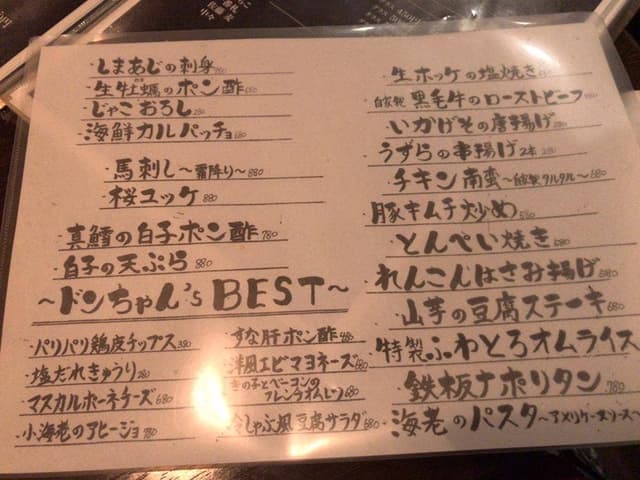 ・しまあじの刺身
・生牡蠣のポン酢
・じゃこおろし 280
・海鮮カルパッチョ 680
・馬刺し〜霜降り〜 880
・桜ユッケ 880
・真鱈の白子ポン酢 780
・白子の天ぷら 880
〜ドンちゃん'sBEST〜
・パリパリ鶏皮チップス 380
・塩だれきゅうり 280
・マスカルポーネチーズ 680
・小海老のアヒージョ 780
・すな肝ポン酢 480
・洋風エビマヨネーズ 680
・きの子とベーコンの
フレンチオムレツ 680
・冷しゃぶ風豆腐サラダ 680
・生ホッケの塩焼き
・自家製黒毛牛のローストビーフ
・いかげその唐揚げ
・うずらの串揚げ 2本 280
・チキン南蛮〜自家製タルタル〜 680
・豚キムチ炒め
・とんぺい焼き 580
・れんこんはさみ揚げ 680
・山芋の豆腐ステーキ 680
・特製ふわとろオムライス
・鉄板ナポリタン 780
・海老のパスタ〜アメリケーヌソース〜